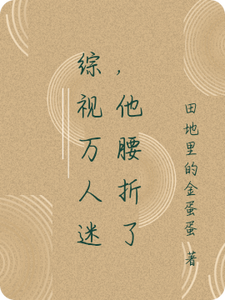 综视万人迷
，他腰折了
田地里的金蛋蛋 著